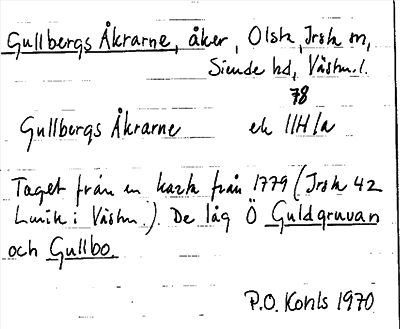 Gullbergs Åkrarne, åker, Olsta, Irsta sn,
Siende hd, Västm. l.
78
Gullbergs Åkrarne ek 11H/a
Taget från en karta från 1779 (Irsta 42
Lmk i Västm.). De låg Ö Guldgruvan
och Gullbo.
P.O. Kohls 1970